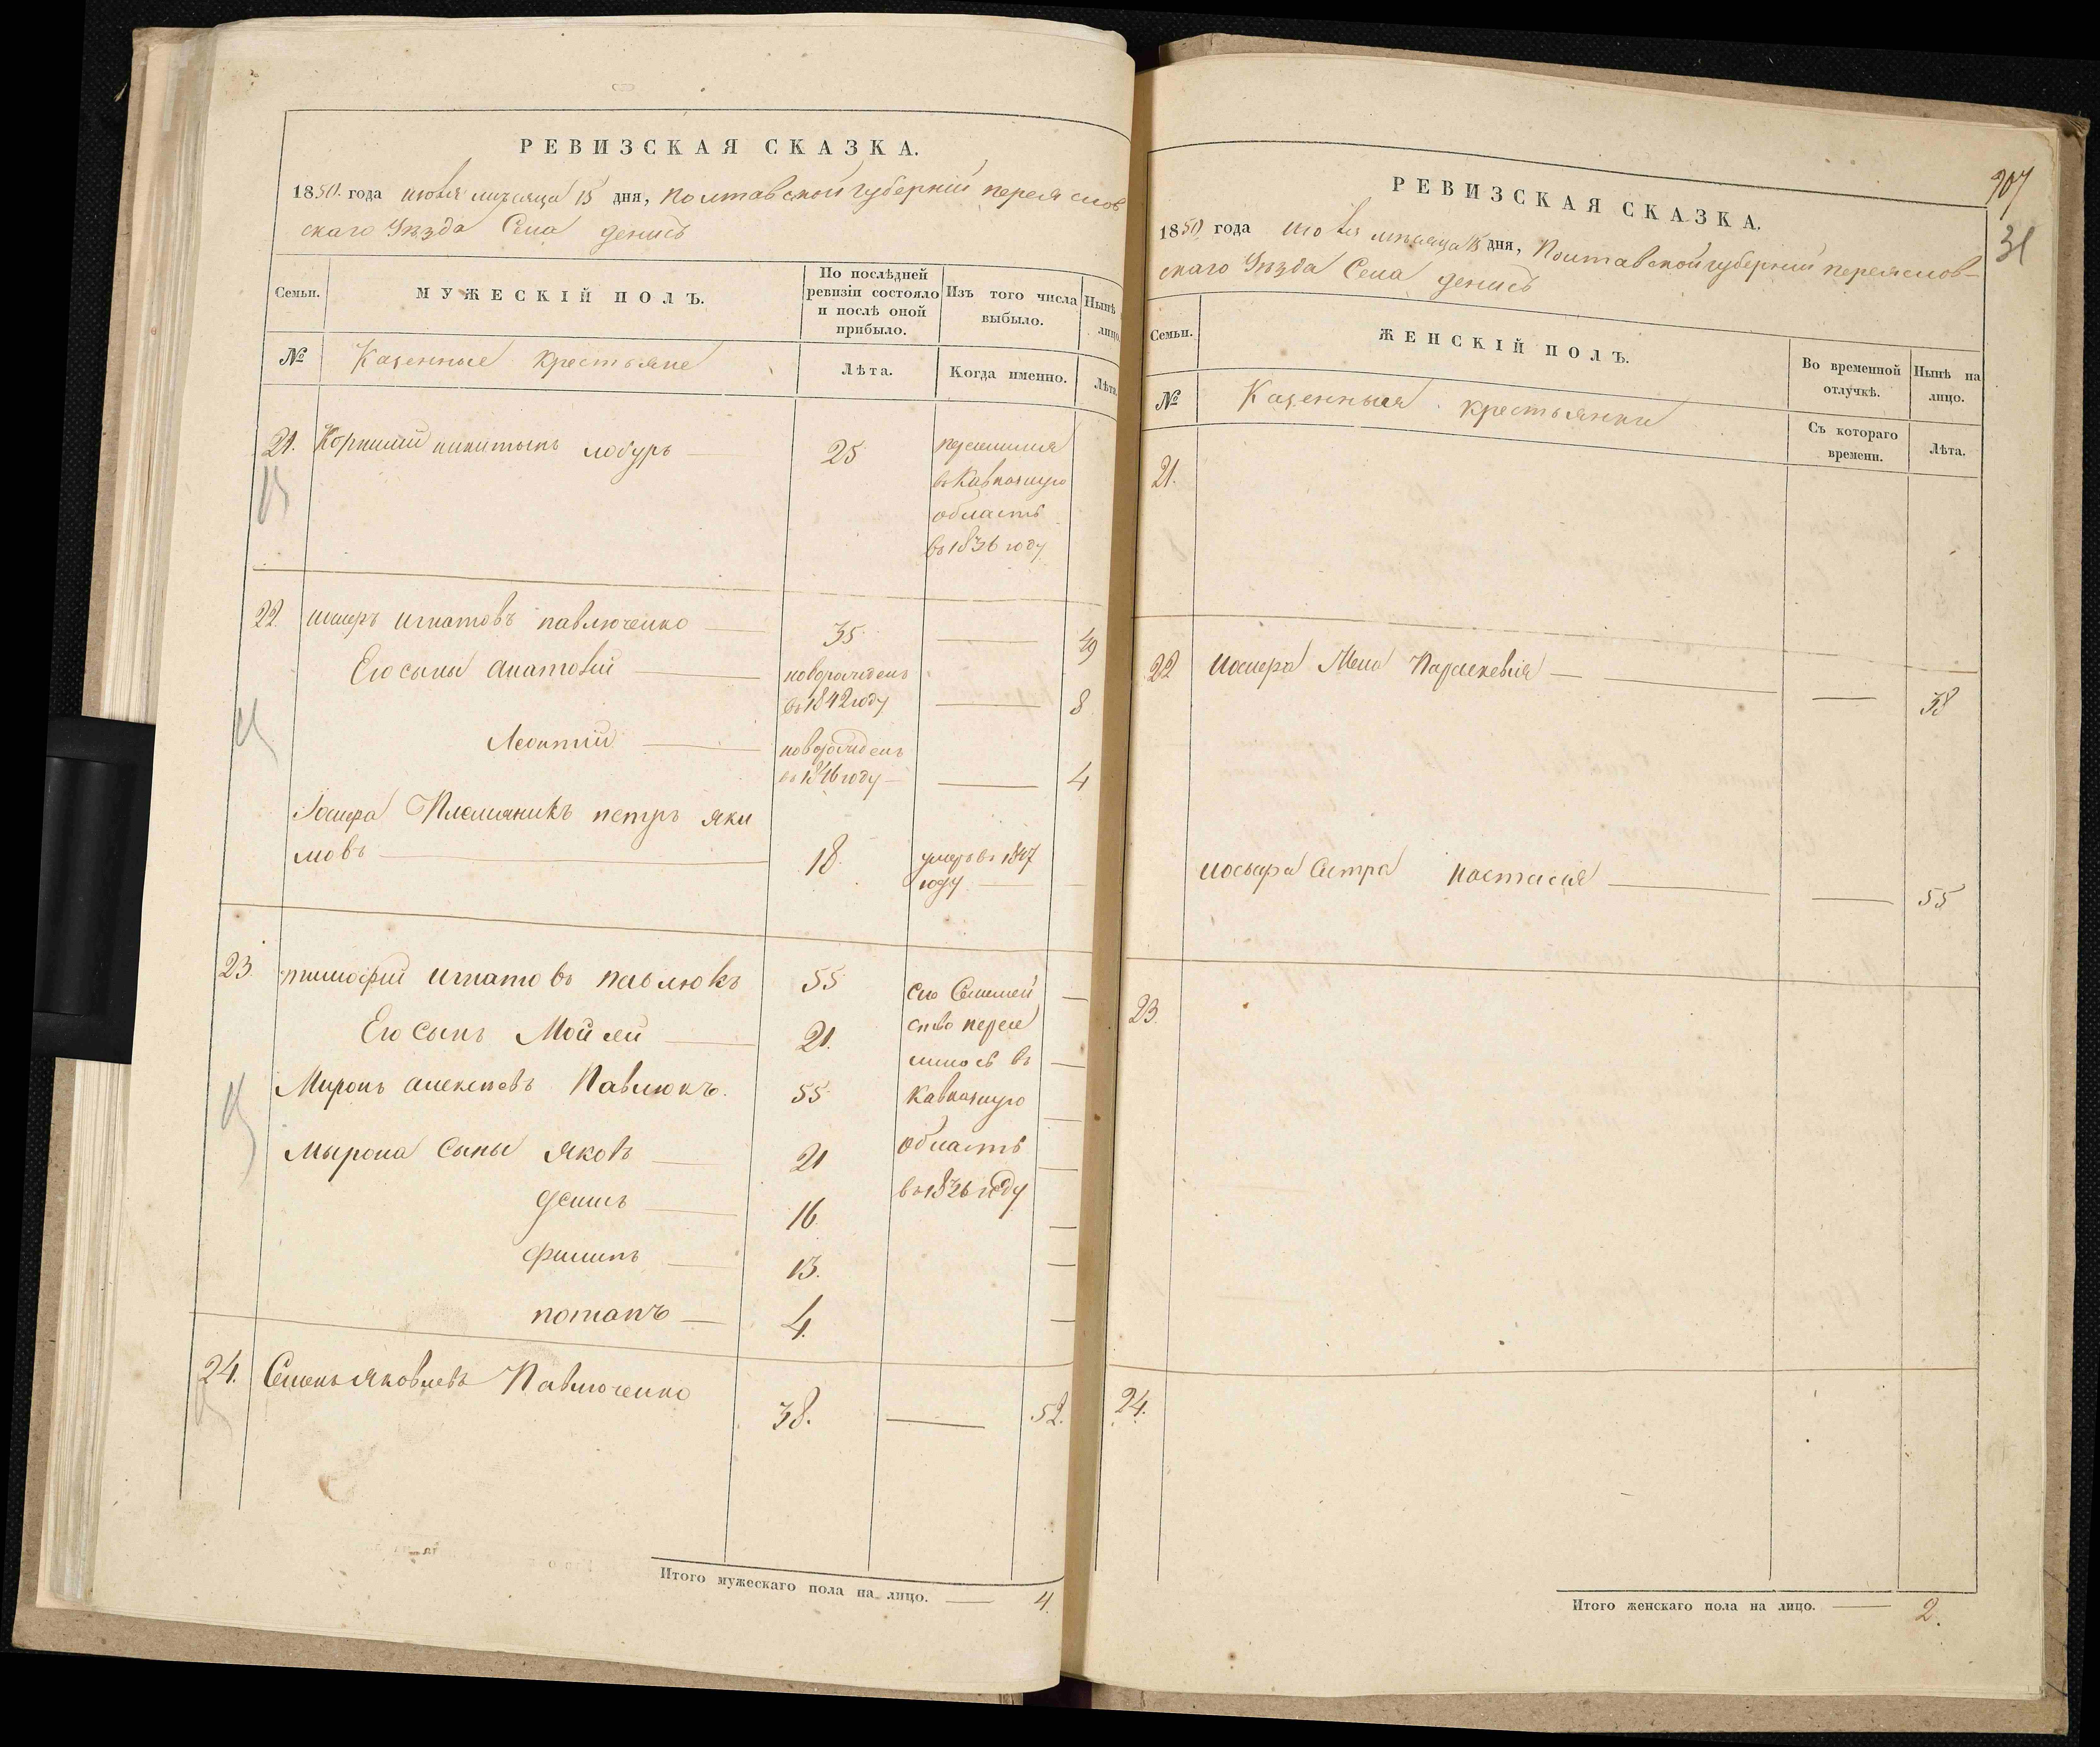 РЕВИЗСКАЯ СКАЗКА.
1850. года июня мѣсяца 15 дня, Полтавской губерніи переяслов
скаго Уѣзда Села денисъ
Семьи.
МУЖЕСКІЙ ПОЛЪ.
По послѣдней
ревизіи состояло
и послѣ оной
прибыло.
Изъ того числа
выбыло.
Нынѣ
лицо
№
Казенные крестьяне
Лѣта.
Когда именно.
Лѣта
21. Корнилий никитынъ 25
переселился
въ Кавказкую
область
въ 1836 году
22. игнатовъ павлюченко 35 49
Его сыны
новорожденъ
въ 1842 году 8
Леонтий
новорожденъ
въ 1846 году 4
Іосифа Племяникъ петръ яки
мовъ 18.
умеръ въ 1847
году
23. тимофий игнатовъ павлюкъ 55
сие Семей
ство пересе
лилось въ
Кавказкую
область
въ 1836 году
Его сынъ Мойсей 21.
Миронъ алексеевъ Павлюкъ. 55
Мырона Сыны яковъ 21
денисъ 16.
филипъ 13.
потапъ 4.
24. Семенъ яковлевъ Павлюченко 38. 52.
Итого мужескаго пола на лицо. 4.
907
31
РЕВИЗСКАЯ СКАЗКА.
1850 года июня мѣсяца 15 дня, Полтавской губерніи переяслов-
скаго Уѣзда Села денисъ
Семьи.
ЖЕНСКІЙ ПОЛЪ.
Во временной
отлучкѣ.
Нынѣ на
лицо.
№
Казенныя крестьянки
Съ котораго
времени.
Лѣта.
21.
22 иосифа Жена Параскевия 38
иосифа Систра настасия 55
23.
24.
Итого женскаго пола на лицо. 2.